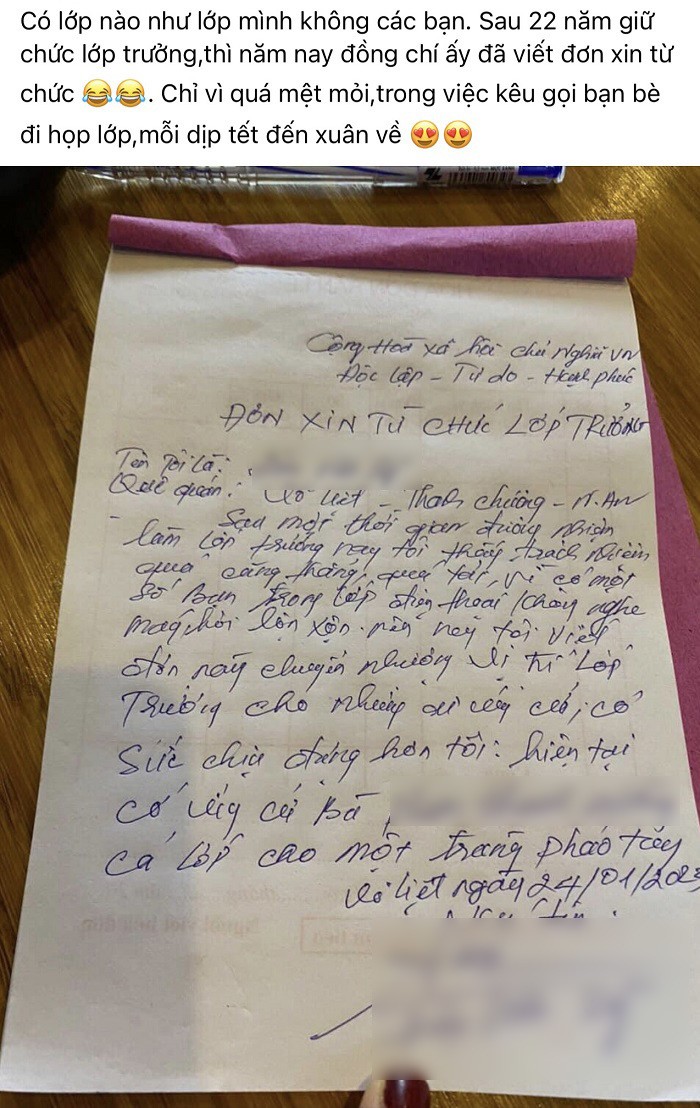 Có lớp nào như lớp mình không các bạn. Sau 22 năm giữ
chức lớp trưởng,thì năm nay đồng chí ấy đã viết đơn xin từ
chức 😂😂. Chỉ vì quá mệt mỏi,trong việc kêu gọi bạn bè
đi họp lớp,mỗi dịp tết đến xuân về 😍😍
Cộng Hoà xã hội chủ Nghĩa VN
Độc lập - Tự do - Hạnh phúc
ĐƠN XIN TỪ CHỨC LỚP TRƯỞNG
Tên tôi là:
Quê quán: Võ Liệt - Thanh chương - N.An
- Sau một thời gian đương nhiệm
làm lớp trưởng nay tôi thấy trách nhiệm
quá căng thẳng, quá tải, vì có một
số bạn trong lớp điện thoại không nghe
máy, hỏi lộn xộn. nên nay tôi viết
đơn này chuyển nhượng vị trí Lớp
Trưởng cho những ai ứng cử, có
Sức chịu đựng hơn tôi: hiện tại
có ứng cử Bà
cả lớp cho một tràng pháo tay
Võ Liệt ngày 24/01/2023